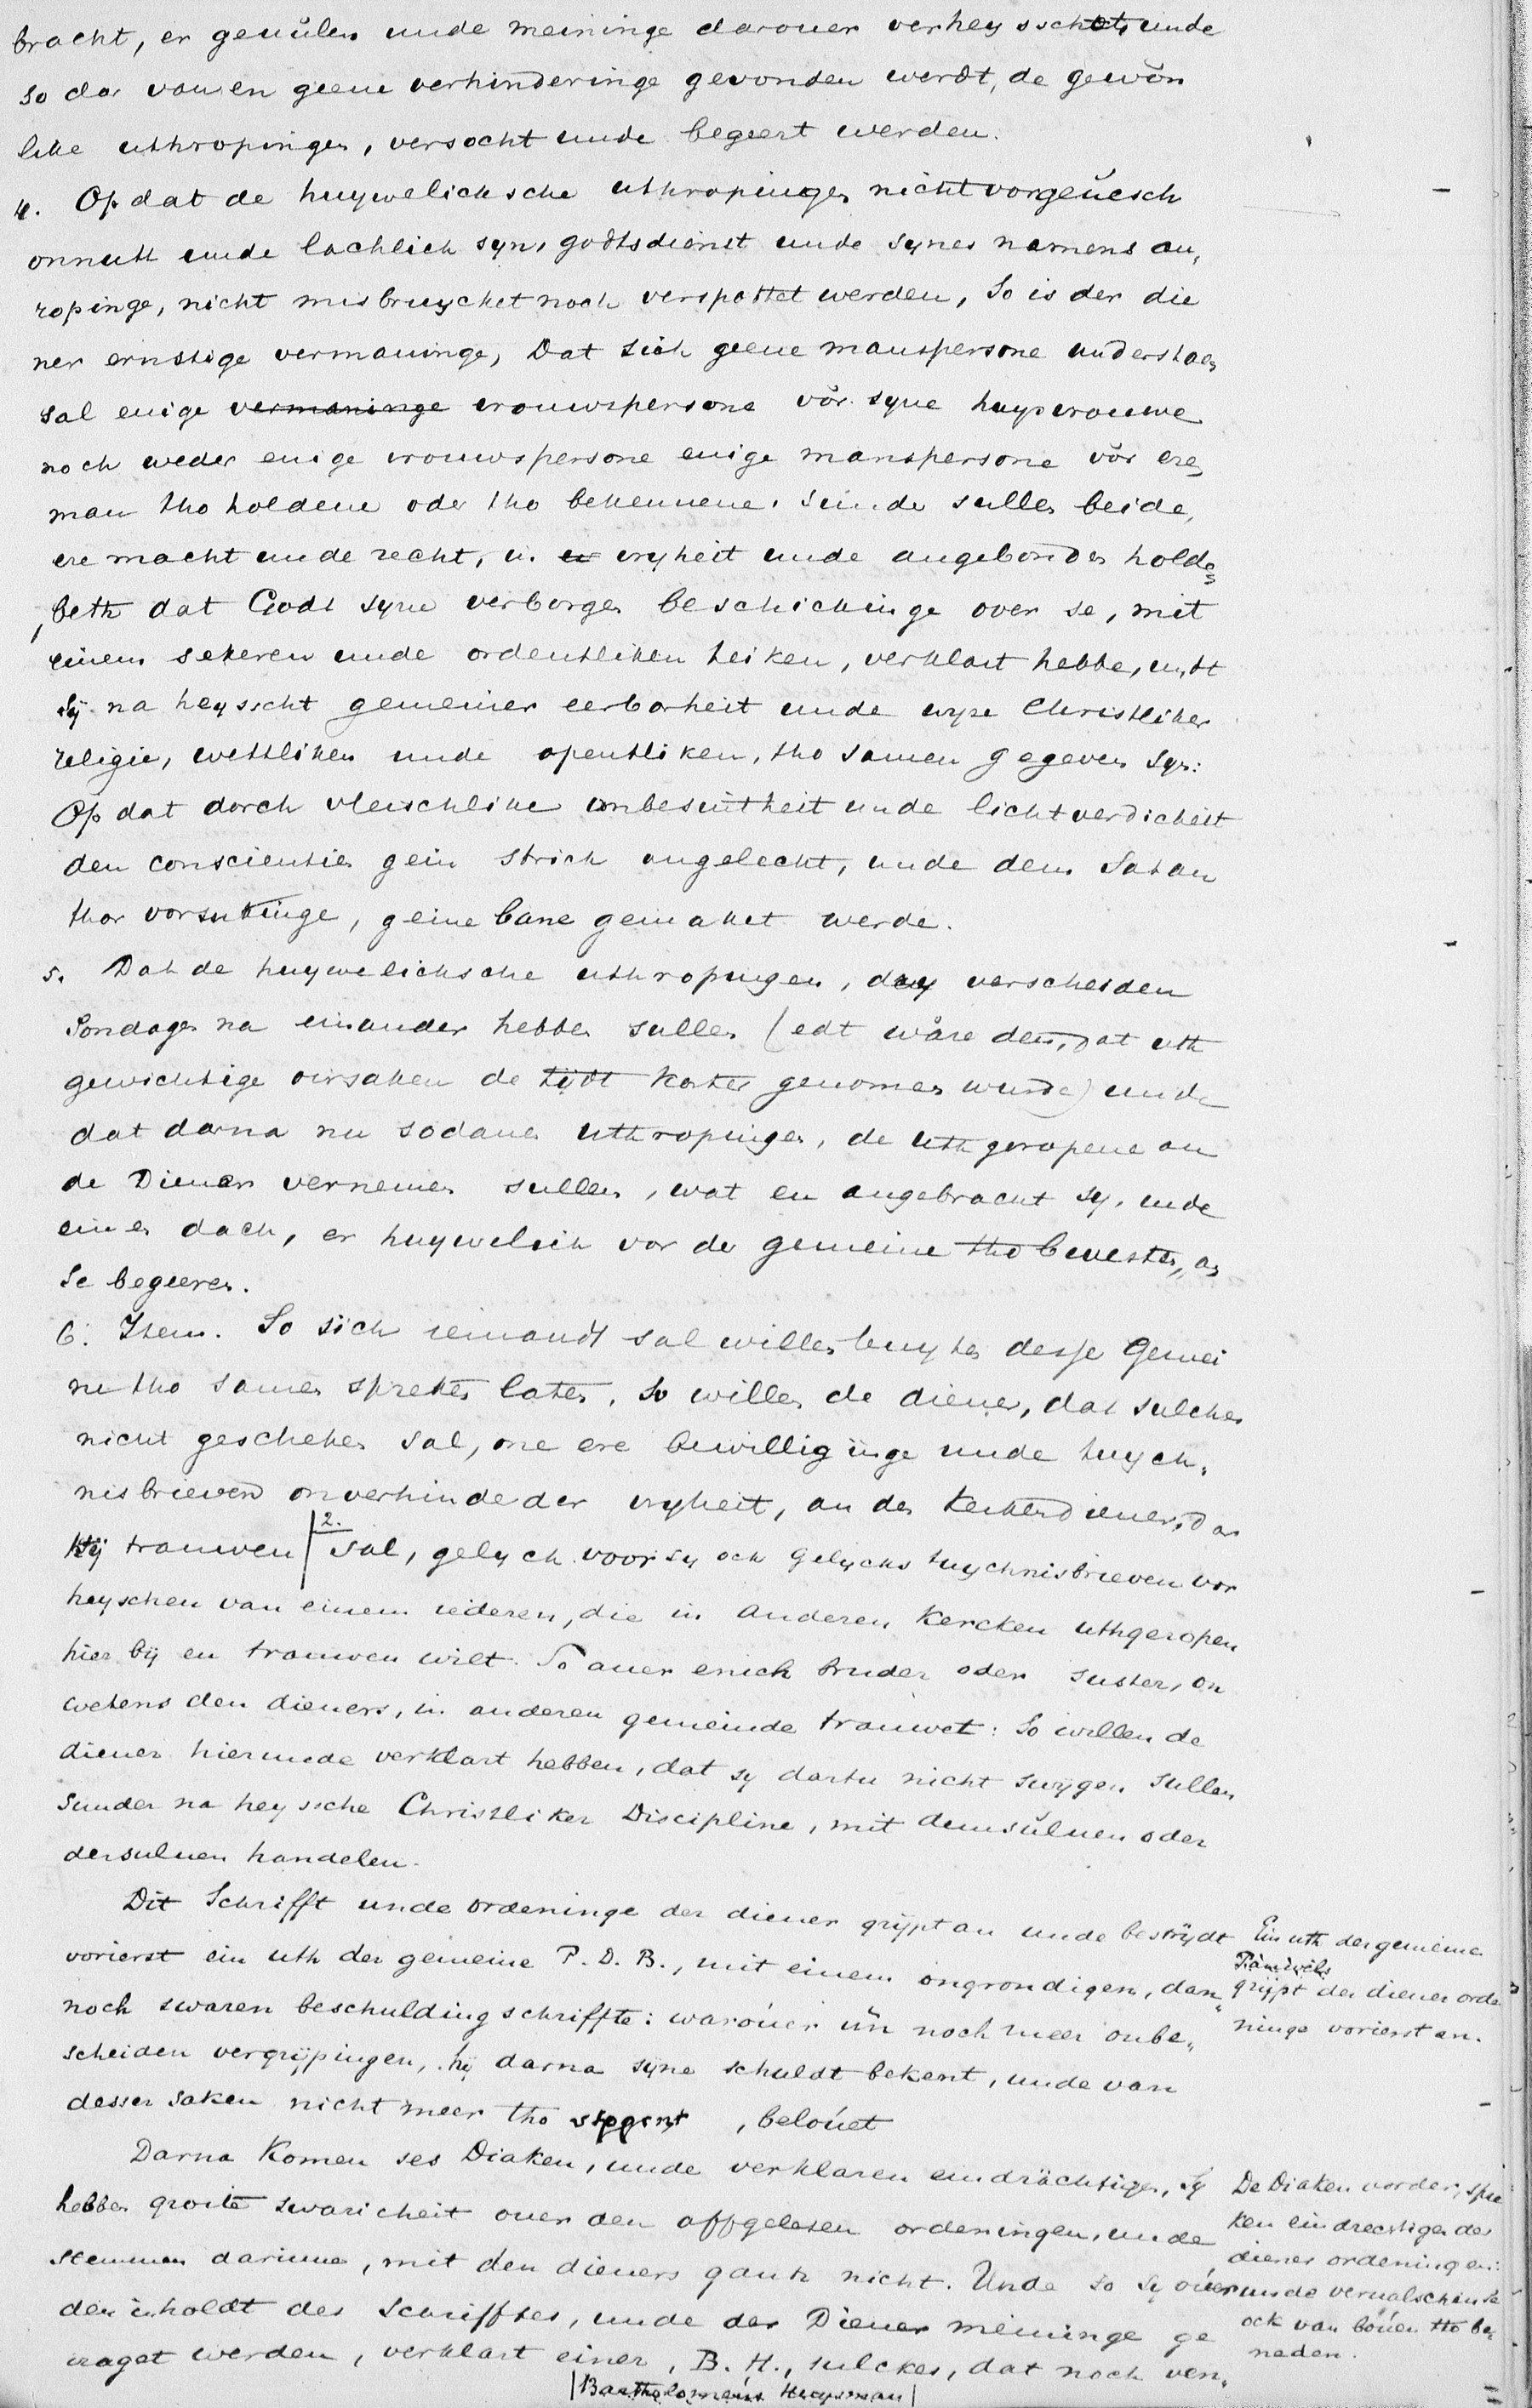 bracht, er geuůlen unde meininge darouer verheysscht, unde
so dar van en geene verhinderinge gevonden werdt, de gewön
like uthropingen, versocht unde begeert werden.
4. Op dat de huywelicksche uthropingen nicht vorgeuesch
onnutt unde lachlich syn, godtsdienst unde synes namens an„
ropinge, nicht misbruycket noch verspottet werden, So is der die
ner ernstige vermaninge, Dat sich geene manspersone understaen
sal enige vermaninge vrouwspersone vör syne huysvrouwe
noch weder enige vrouwspersone enige manspersone vör eren
man tho holdene oder tho bekennene. Sunder sullen beide,
ere macht unde recht, in vryheit unde angebonden holden
beth dat Godt syne verborgen beschickinge over se, mit
einem sekeren unde ordentliken teiken, verklart hebbe, undt
sÿ na heysscht gemeiner eerbarheit unde wyze Christliker
religie, wettliken unde opentliken, tho samen gegeven syn:
Op dat dorch vleischlike onbesintheit unde lichtverdicheit
den conscientien gein strick angelecht, unde dem Satan
thor vorsukinge, geine bane gemaket werde.
5. Dat de huywelicksche uthropingen, drey verscheiden
Sondagen na einander hebben sullen (edt wäre den, dat uth
gewichtige oirsaken de tÿdt korter genomen wurde) unde
dat darna nu sodanen uthropingen, de uthgeropene an
de Dienar vernemen sullen, wat en angebracht sy, unde
einen dach, er huywelich vor der gemeine tho bevesten, as
Se begeeren.
6. Item. So sich iemandt sal willen buyten desse Gemei
ne tho samen spreken laten, so willen de diener, dat sulches
nicht geschehen sal, one ere bewilliginge unde tuych„
nisbrieven onverhindeder vryheit, an den Kerkendiener, dar
hÿ trouwen |2. sal, gelych voor sy ock gelycks tuychnisbrieven vor
heyschen van einem iederen, die in anderen Kercken uthgeropen
hier by en trouwen wilt. So auer enich bruder oder suster, on
wetens den dieners, in anderen gemeinde trouwet: So willen de
diener hiermede verklart hebben, dat sy dartu nicht swÿgen sullen
Sunder na heyssche Christliker Discipline, mit demsuluen oder
dersuluen handelen.
Dit Schrifft unde ordeninge der diener grypt an unde bestrÿdt
vorierst ein uth der gemeine P. D. B., mit einem ongrondigen, dan„
noch swaren beschulding schriffte: waroúer ůn noch meer onbe„
scheiden vergrÿpingen, hÿ darna sÿne schuldt bekent, unde van
desser saken nicht meer tho , beloúet
Ein uth der gemeine
grÿpt der diener orde
ninge vorierst an.
Darna Komen ses Diaken, unde verklaren eindrächtigen, Sy
hebben groite swaricheit ouer den affgelesen ordeningen, unde
stemmen darinne, mit den dieners gantz nicht. Unde so sy oúer
den inholdt des Schrifftes, unde der Diener meininge ge
vraget werden, verklart einer, B. H., sulckes, dat noch ven„
|Bartholomeüs Huysman|
De Diaken vorder, spre
ken eindrechtigen der
diener ordeningen:
unde vervalschen se
ock van boúen tho be
neden.